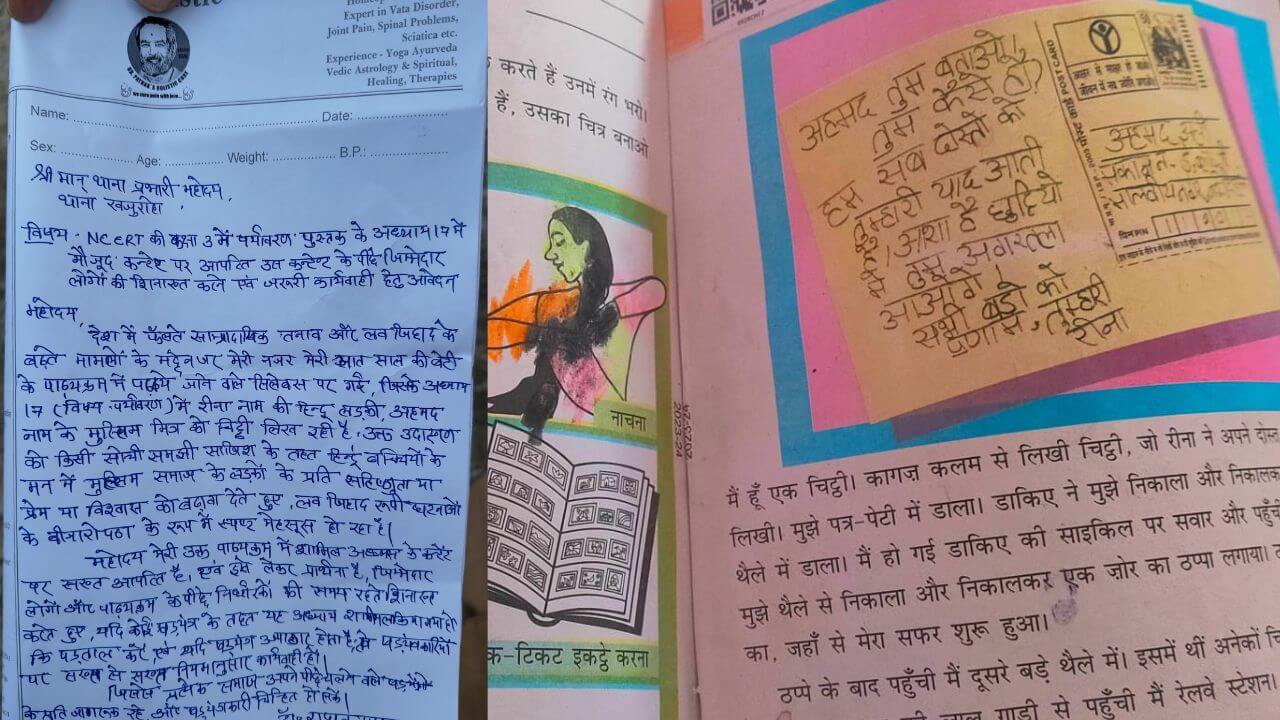 Expert in Vata Disorder,
Joint Pain, Spinal Problems,
Sciatica etc.
Experience - Yoga Ayurveda
Vedic Astrology & Spiritual,
Healing, Therapies
Name: Date:
Sex: Age: Weight: B.P.:
श्री मान् थाना प्रभारी महोदय,
थाना खजुराहो,
विषय - NCERT की कक्षा 3 में पर्यावरण पुस्तक के अध्याय 17 में
मौजूद कन्टेंट पर आपत्ति उस कन्टेन्ट के पीछे जिम्मेदार
लोगों की शिनाख्त करने एवं जरूरी कार्यवाही हेतु आवेदन
महोदय,
देश में फैलते साम्प्रदायिक तनाव और लव जिहाद के
बढ़ते मामलों के मद्देनजर मेरी नजर मेरी सात साल की बेटी
के पाठ्यक्रम में पढ़ाये जाने वाले सिलेबस पर गई, जिसके अध्याय
17 (विषय-पर्यावरण) में रीना नाम की हिन्दू लड़की, अहमद
नाम के मुस्लिम मित्र को चिट्ठी लिख रही है, उक्त उदाहरण
को किसी सोची समझी साजिश के तहत हिन्दू बच्चियों के
मन में मुस्लिम समाज के लड़कों के प्रति सहिष्णुता या
प्रेम या विश्वास को बढ़ावा देते हुए, लव जिहाद रूपी घटनाओं
के बीजारोपण के रूप में स्पष्ट मेहसूस हो रहा है।
महोदय मेरी उक्त पाठ्यक्रम में शामिल अध्याय के कन्टेंट
पर सख्त आपत्ति है, एवं इसे लेकर प्रार्थना है, जिम्मेदार
लोगों और पाठ्यक्रम के पीछे की समय रहते शिनाख्त
करते हुए, यदि कोई षड्यंत्र के तहत यह अध्याय शामिल
कि पड़ताल करें एवं यदि षड्यंत्र उजागर होता है, तो षड्यंत्रकारियों
पर सख्त से सख्त नियमानुसार कार्यवाही हो।
जिससे प्रत्येक समाज अपने पीछे चलने वाले
के प्रति जागरूक रहे, और षड्यंत्रकारी चिन्हित हो सकें।
करते हैं उनमें रंग भरो।
हैं, उसका चित्र बनाओ
नाचना
क-टिकट इकट्ठे करना
2023-24
अहमद तुम बताओ
तुम कैसे हो?
हम सब दोस्तों को
तुम्हारी याद आती
है, आशा है छुट्टियों
में तुम अगरतला
आओगे।
सभी बड़ों को
प्रणाम, तुम्हारी
रीना
POST CARD
अहमद अली
पिन PIN
मैं हूँ एक चिट्ठी। कागज़ कलम से लिखी चिट्ठी, जो रीना ने अपने दोस्त
लिखी। मुझे पत्र-पेटी में डाला। डाकिए ने मुझे निकाला और निकालकर
थैले में डाला। मैं हो गई डाकिए की साइकिल पर सवार और पहुँची
मुझे थैले से निकाला और निकालकर एक ज़ोर का ठप्पा लगाया।
का, जहाँ से मेरा सफर शुरू हुआ।
ठप्पे के बाद पहुँची मैं दूसरे बड़े थैले में। इसमें थीं अनेकों
लाल गाड़ी से पहुँची मैं रेलवे स्टेशन।